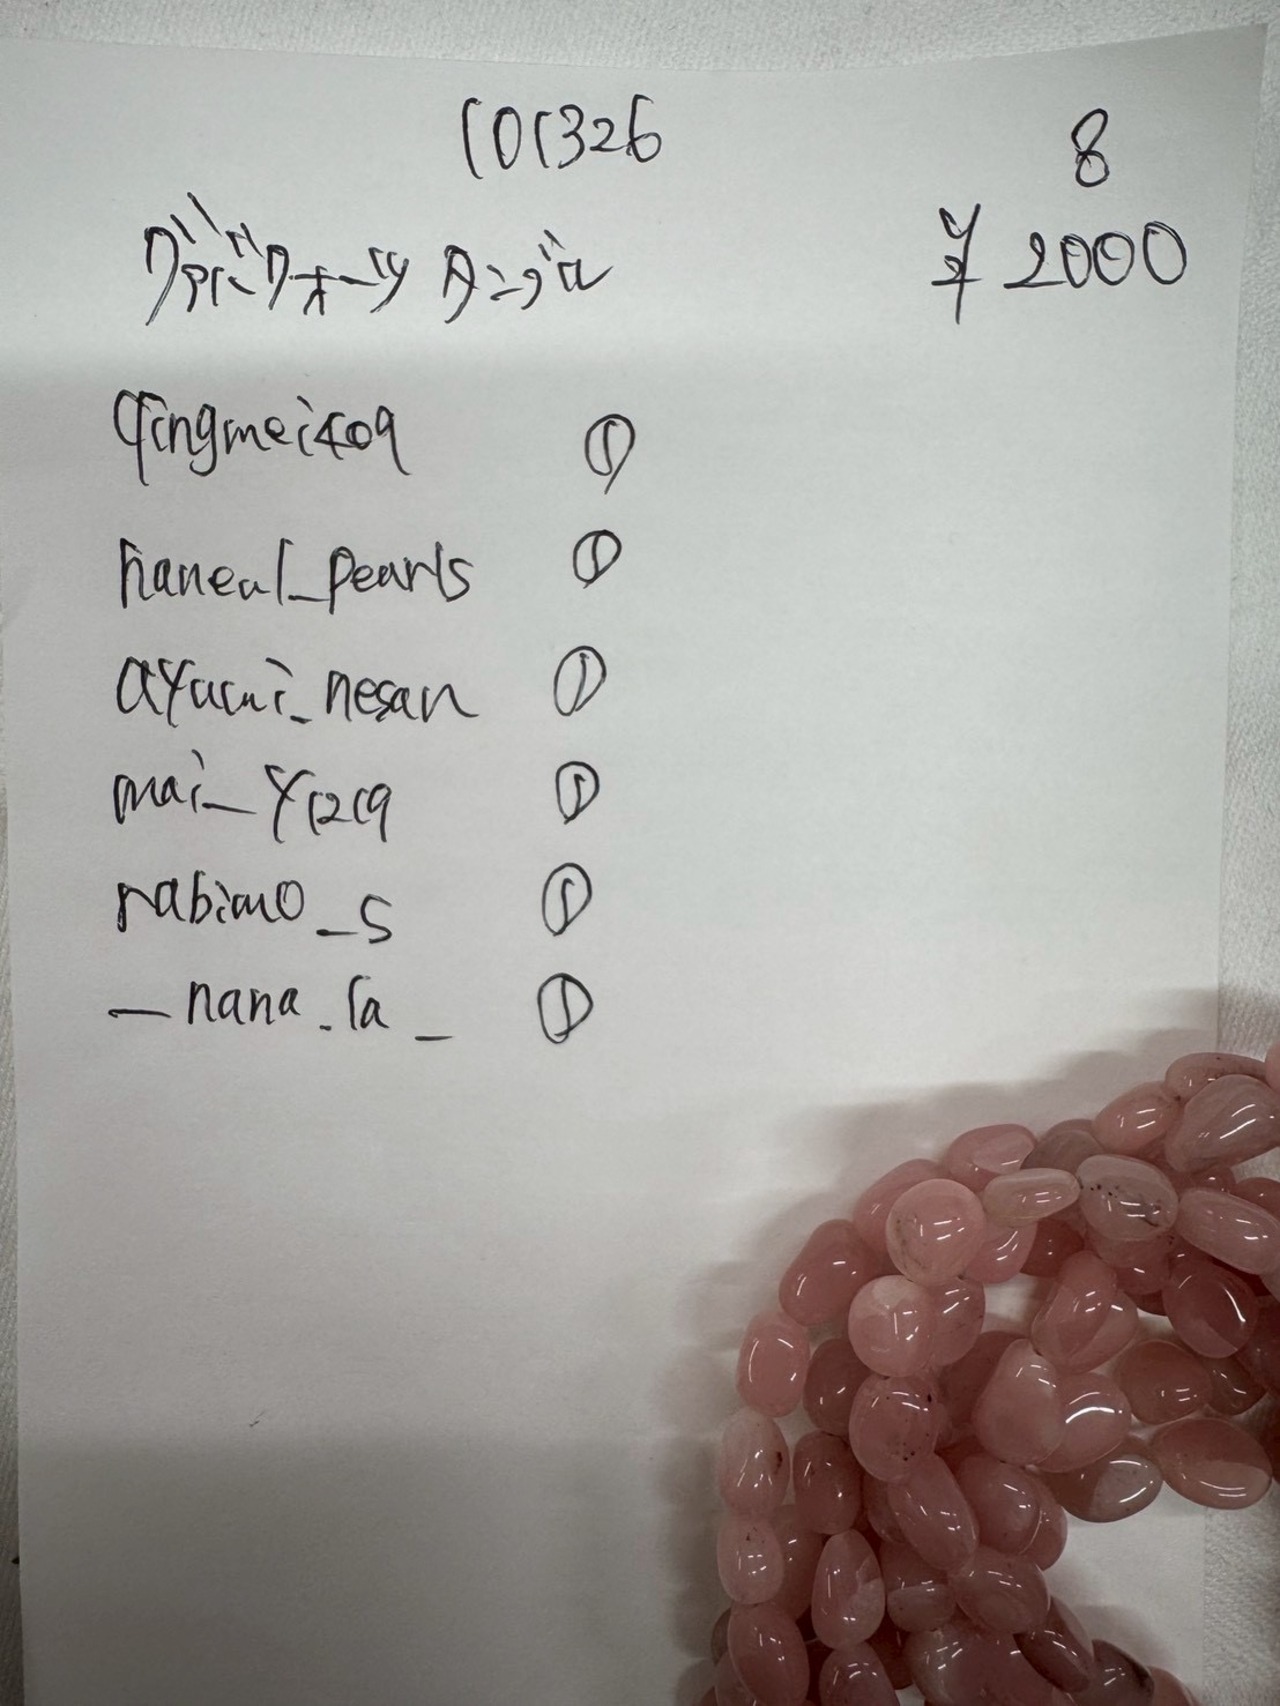 101326 8
グァバクォーツ タンブル ¥2000
qingmei409 ①
haneul_pearls ①
ayumi_nesan ①
mai_y1219 ①
rabimo_s ①
_nana.la_ ①